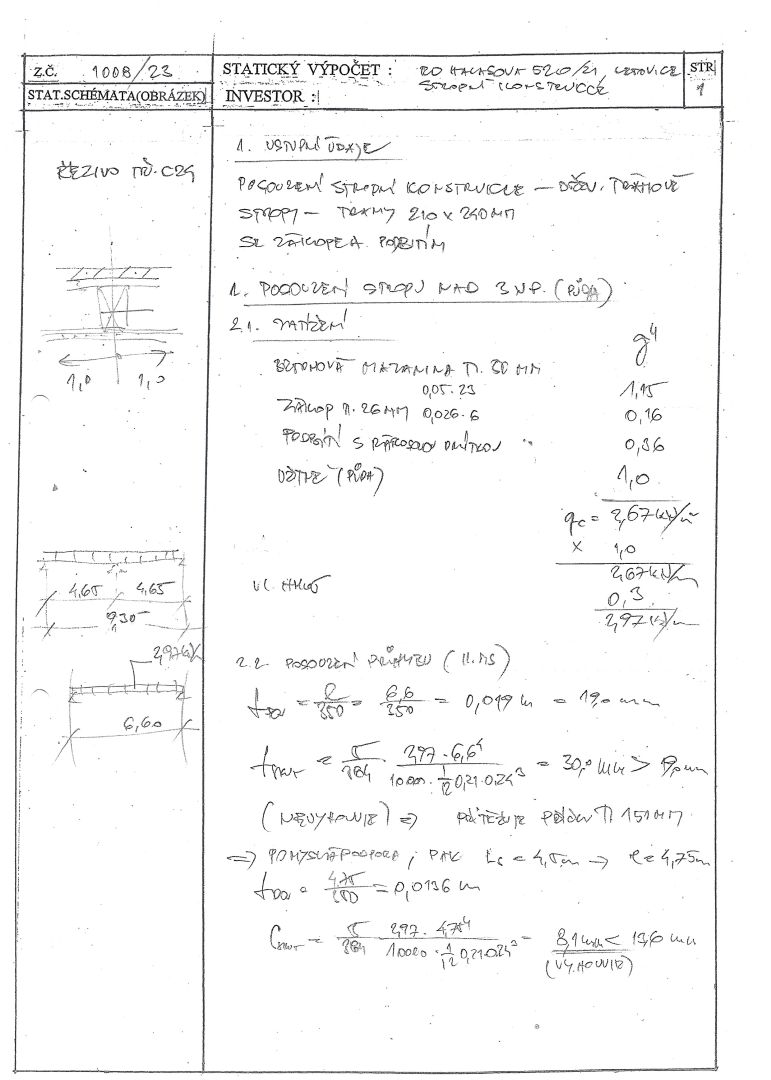 Z.Č. 1008/23
STATICKÝ VÝPOČET : RD HALASOVA 520/21, LETOVICE
STROPNÍ KONSTRUKCE
STR
1
STAT.SCHÉMATA(OBRÁZEK)
INVESTOR :
ŘEZIVO TŘ. C24
1,0 1,0
4,65 4,65
9,30
2,97 kN/
6,60
1. VSTUPNÍ ÚDAJE
POSOUZENÍ STROPNÍ KONSTRUKCE – DŘEV. TRÁMOVÉ
STROPY – TRÁMY 210 x 240 MM
SE ZÁKLOPEM A PODBITÍM
1. POSOUZENÍ STROPU NAD 3 NP. (PŮDA)
2.1. ZATÍŽENÍ
BETONOVÁ MAZANINA TL. 50 MM
0,05.23 1,15
ZÁKLOP TL. 26 MM 0,026.6 0,16
PODBITÍ S RÁKOSOVOU OMÍTKOU 0,36
UŽITNÉ (PŮDA) 1,0
qc = 2,67 kN/m²
x 1,0
2,67 kN/m
VL. HMOT 0,3
2,97 kN/m
2.2. POSOUZENÍ PRŮHYBU (II. MS)
fDOV = l/350 = 6,6/350 = 0,019 m = 19,0 mm
fSKUT = 5/384 · 2,97 · 6,6⁴ / 10000 · 1/12 0,21·0,24³ = 30,0 mm > 19,0 mm
(NEVYHOVUJE) => PŘITĚŽUJE PŘÍČKU TL 150 MM
=> POMYSLNÁ PODPORA, PAK Ls = 4,5 m → l = 4,75 m
fDOV = 4,75/350 = 0,0136 m
fSKUT = 5/384 2,97 · 4,75⁴ / 10000 · 1/12 0,21·0,24³ = 8,1 mm < 13,6 mm
(VYHOVUJE)